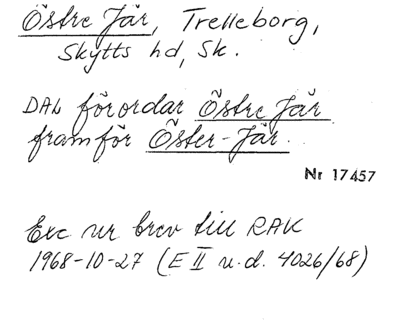 Östre Jär, Trelleborg,
Skytts hd, Sk.
DAL förordar Östre Jär
framför Öster-Jär.
Nr 17457
Exc ur brev till RAK
1968-10-27 (E II u.d. 4026/68)